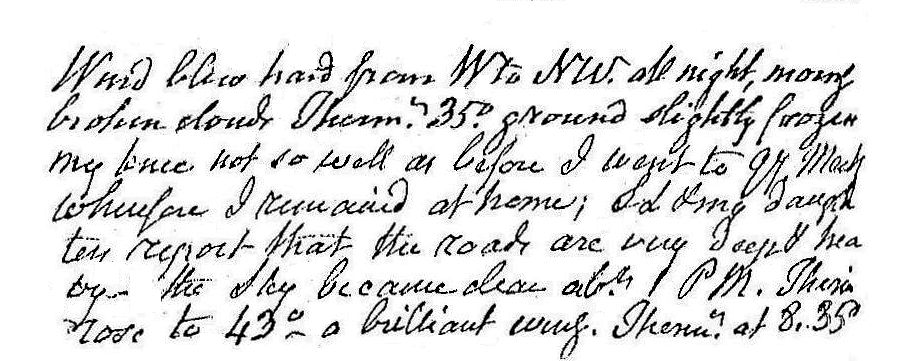 Wind blew hard from W to NW. all night, morng
broken clouds Thermr. 35°. ground slightly frozen
my knee not so well as before I went to Qy Meetg
wherefore I remained at home; Ed & my daugh
ters report that the roads are very deep & hea
vy - the sky became clear abt. 1 PM. Therm
rose to 43° - a brilliant eveng. Thermr. at 8. 35°